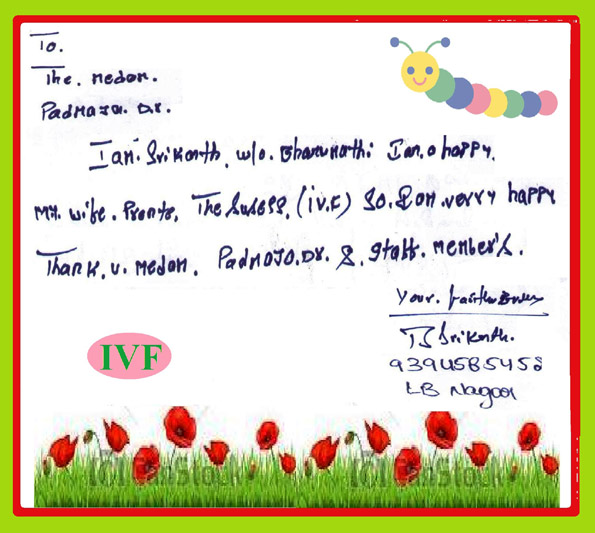 To.
The. medam.
Padmaja. Dr.
I am. Srikanth. w/o. Bhanumathi I am. a happy.
My. wife. Pronts, The Suless, (IV.F) So. I am. verry happy
Thank. u. Medam. Padmaja. Dr. &. Staff. member's.
Your.
TS Srikanth.
9394585458
LB Nagar
IVF
CanStock